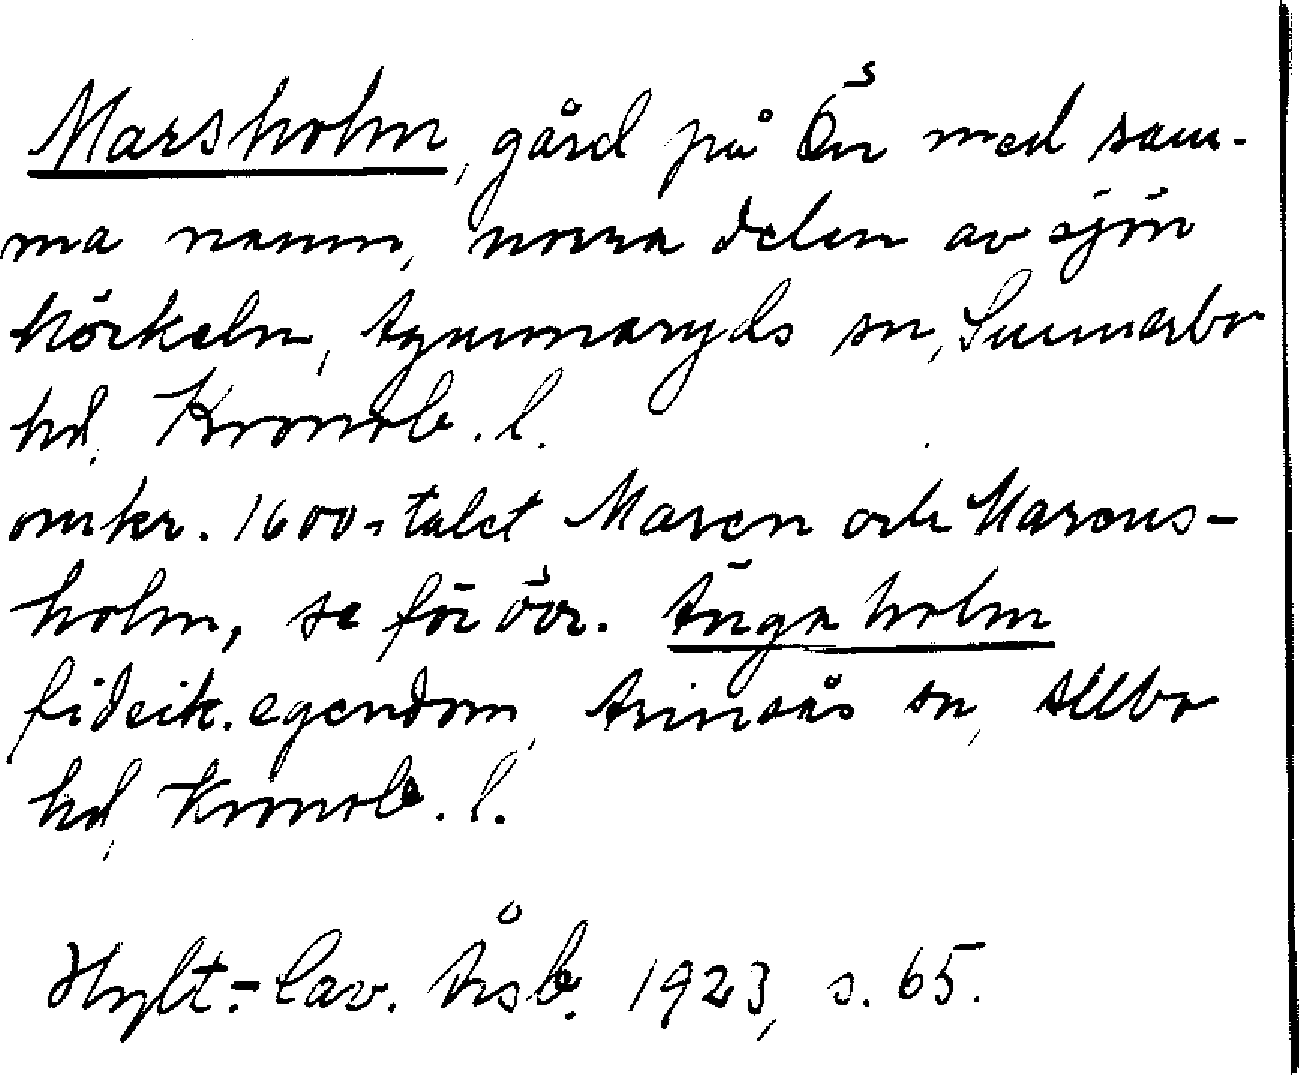 Marsholm, gård på Ön med sam-
ma namn, norra delen av sjön
Möckeln, Agunnaryds sn, Sunnerbo
hd, Kronob. l.
omkr. 1600-talet Maren och Marcus-
holm, se för övr. Ängaholm
fideik. egendom, Annsås sn, Allbo
hd, Kronob. l.
Hylt.-Cav. Åsb. 1923, s. 65.